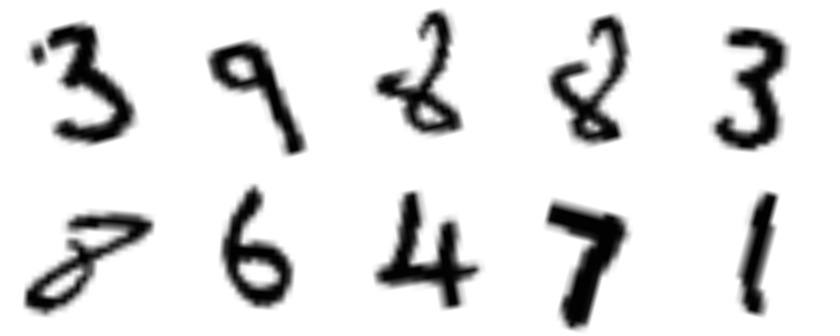 3 9 8 8 3
8 6 4 7 1